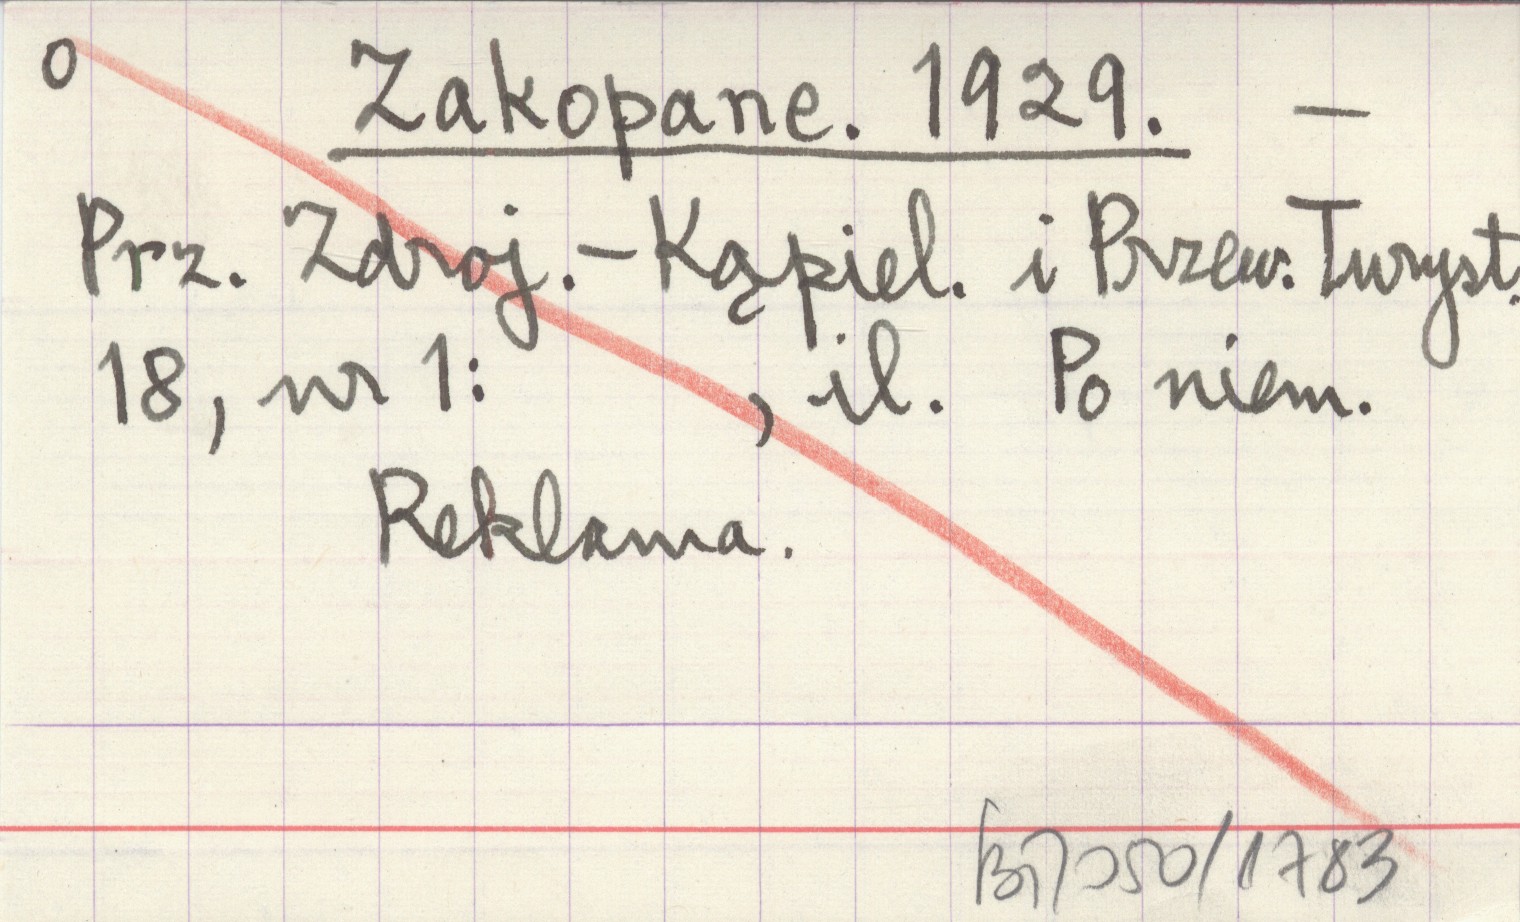 o Zakopane. 1929. —
Prz. Zdroj.-Kąpiel. i Przew. Turyst.
18, nr 1: , il. Po niem.
Reklama.
/1783